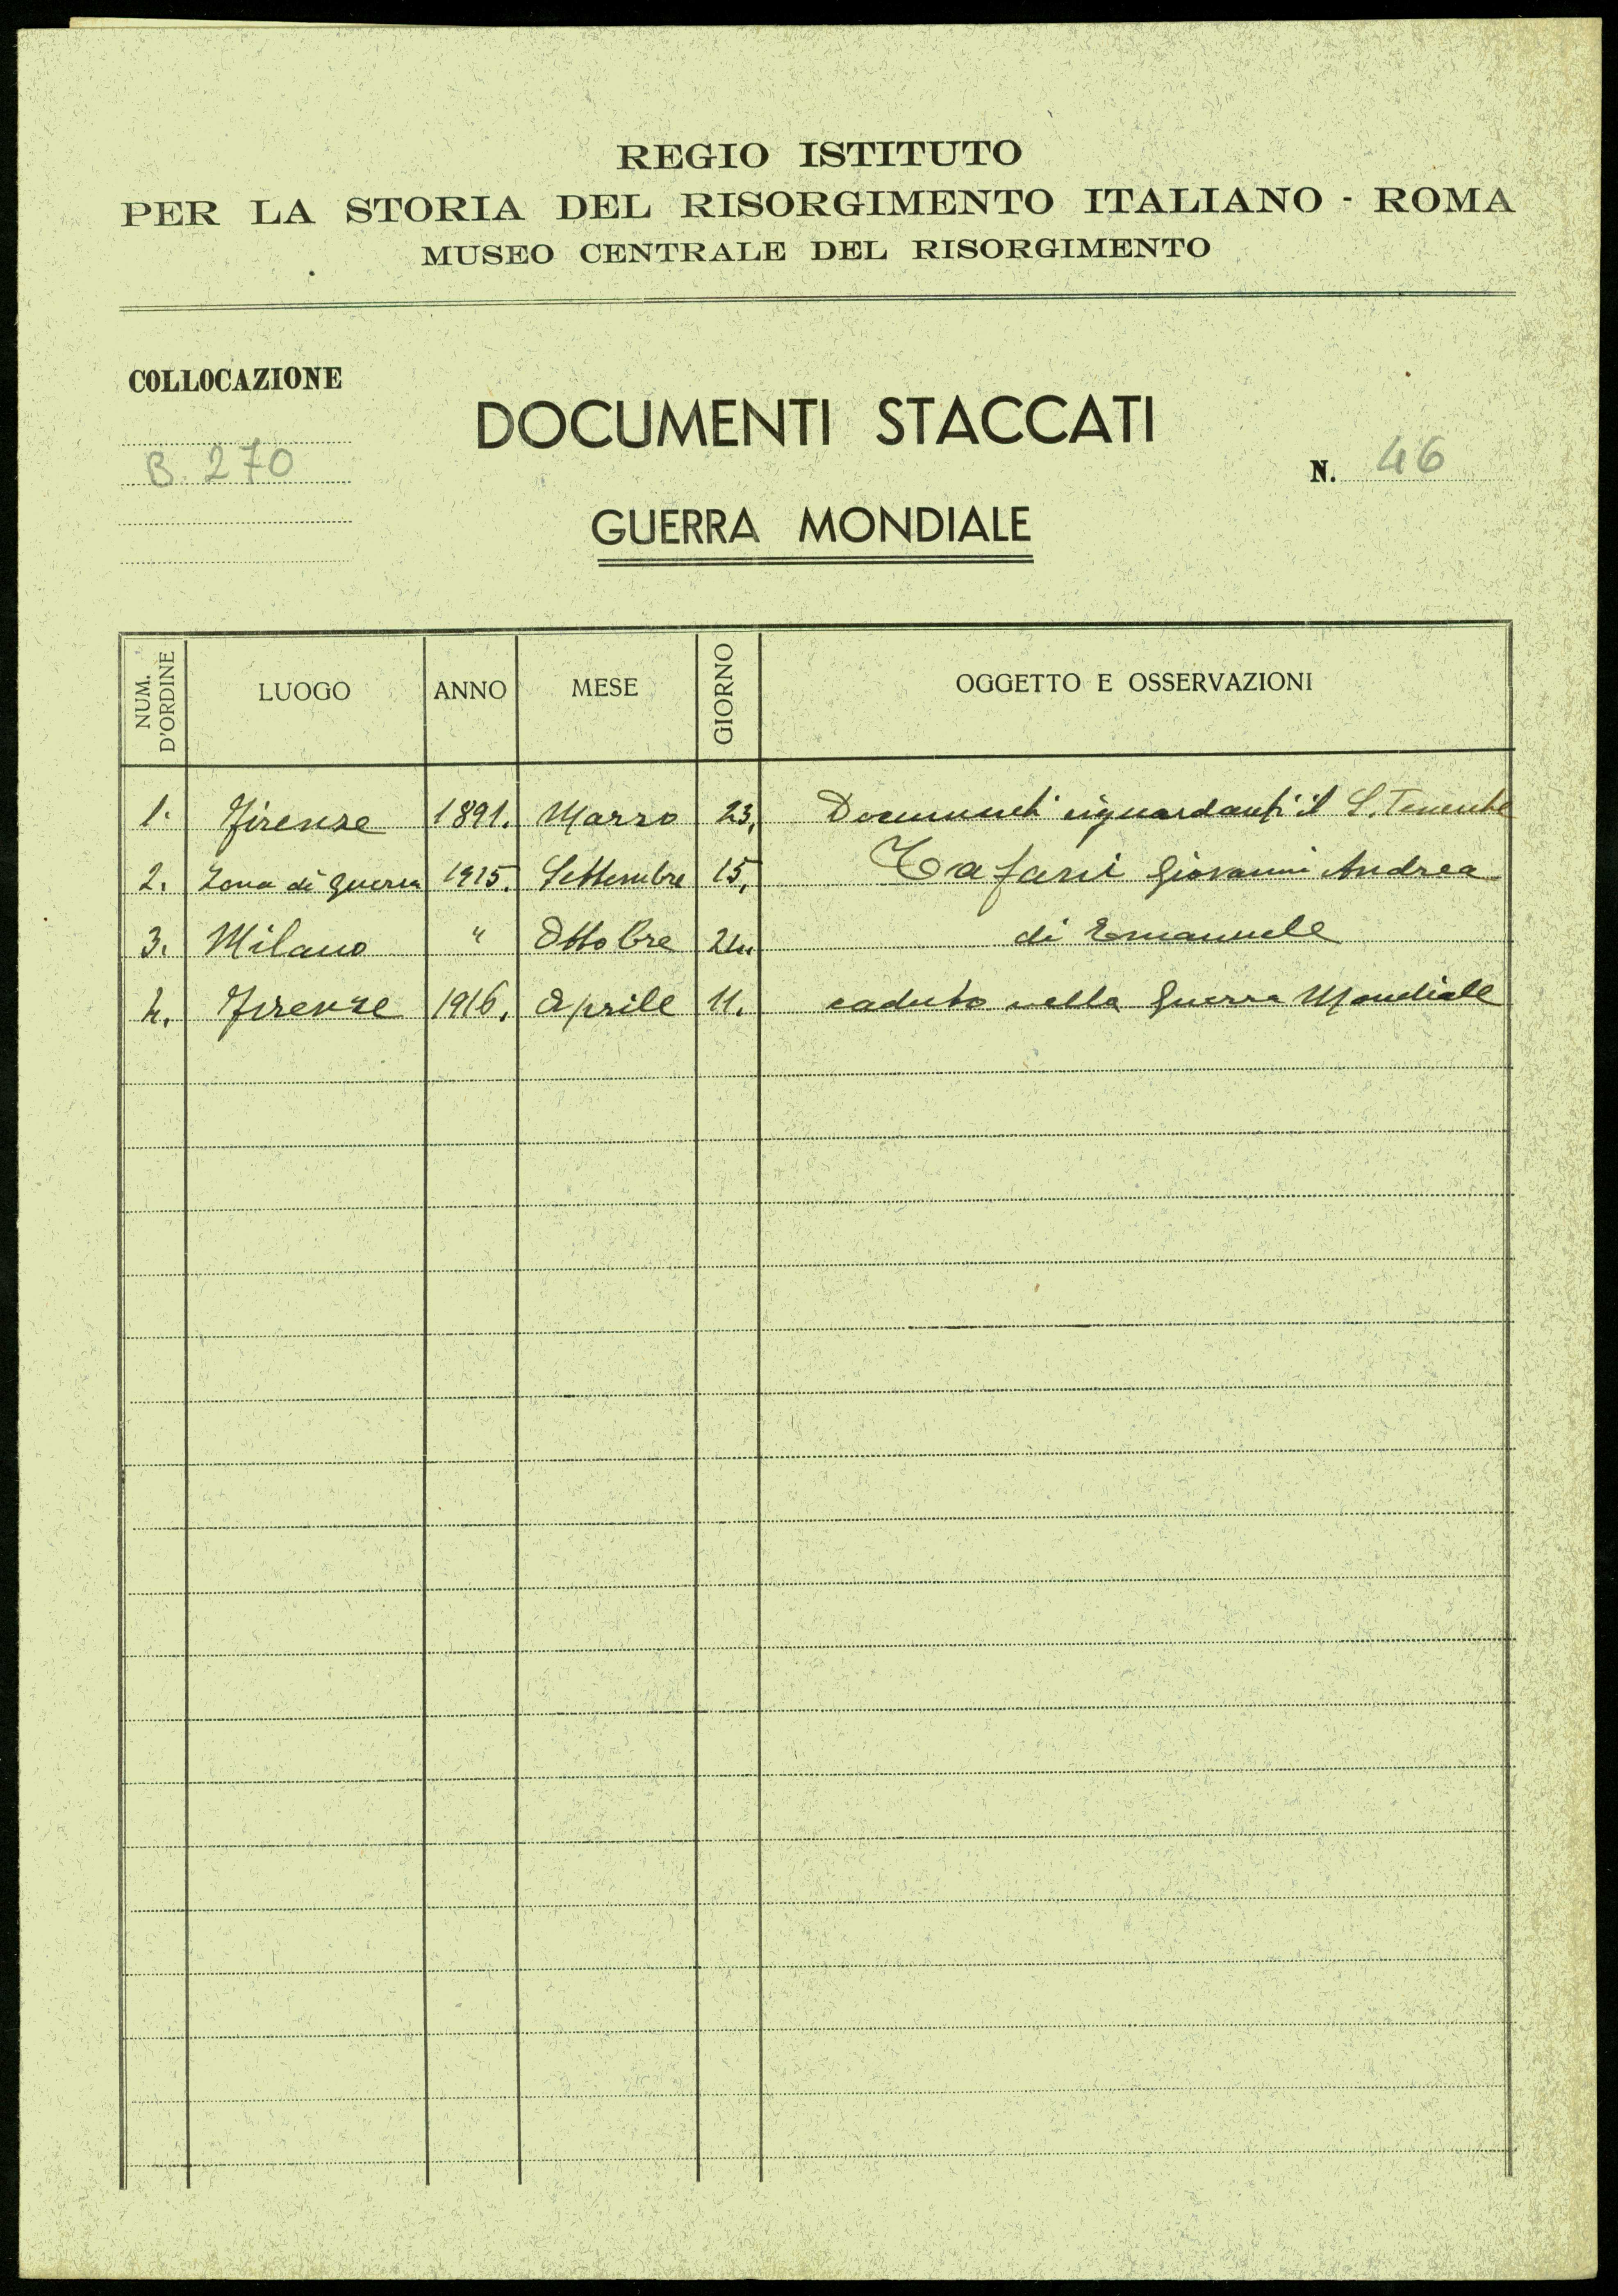 REGIO ISTITUTO
PER LA STORIA DEL RISORGIMENTO ITALIANO - ROMA
MUSEO CENTRALE DEL RISORGIMENTO
COLLOCAZIONE
DOCUMENTI STACCATI
B. 270
N. 46
GUERRA MONDIALE
NUM. D'ORDINE LUOGO ANNO MESE GIORNO OGGETTO E OSSERVAZIONI
1. Firenze 1891. Marzo 23, Documenti riguardanti il S. Tenente
2. Zona di guerra 1915. Settembre 15, Tafani Giovanni Andrea
3. Milano " Ottobre 24. di Emanuele
4. Firenze 1916. Aprile 11. caduto nella Guerra Mondiale